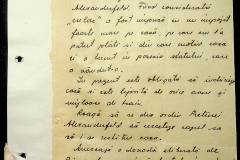 Alexanderfeld. Fiind considerată
"culac" a fost impusă cu un impozit
foarte mare pe casă, pe care nu l'a
putut plăti și din care motiv casa
ei a trecut în posesia statului, care
a vândut-o.
În prezent este obligată să închirieze
casă și este lipsită de orice avere și
mijloace de trai.
Roagă să se dea ordin Primăriei
Alexanderfeld să cerceteze cazul ei
să i se restitue casa.
Anexează o dovadă eliberată de